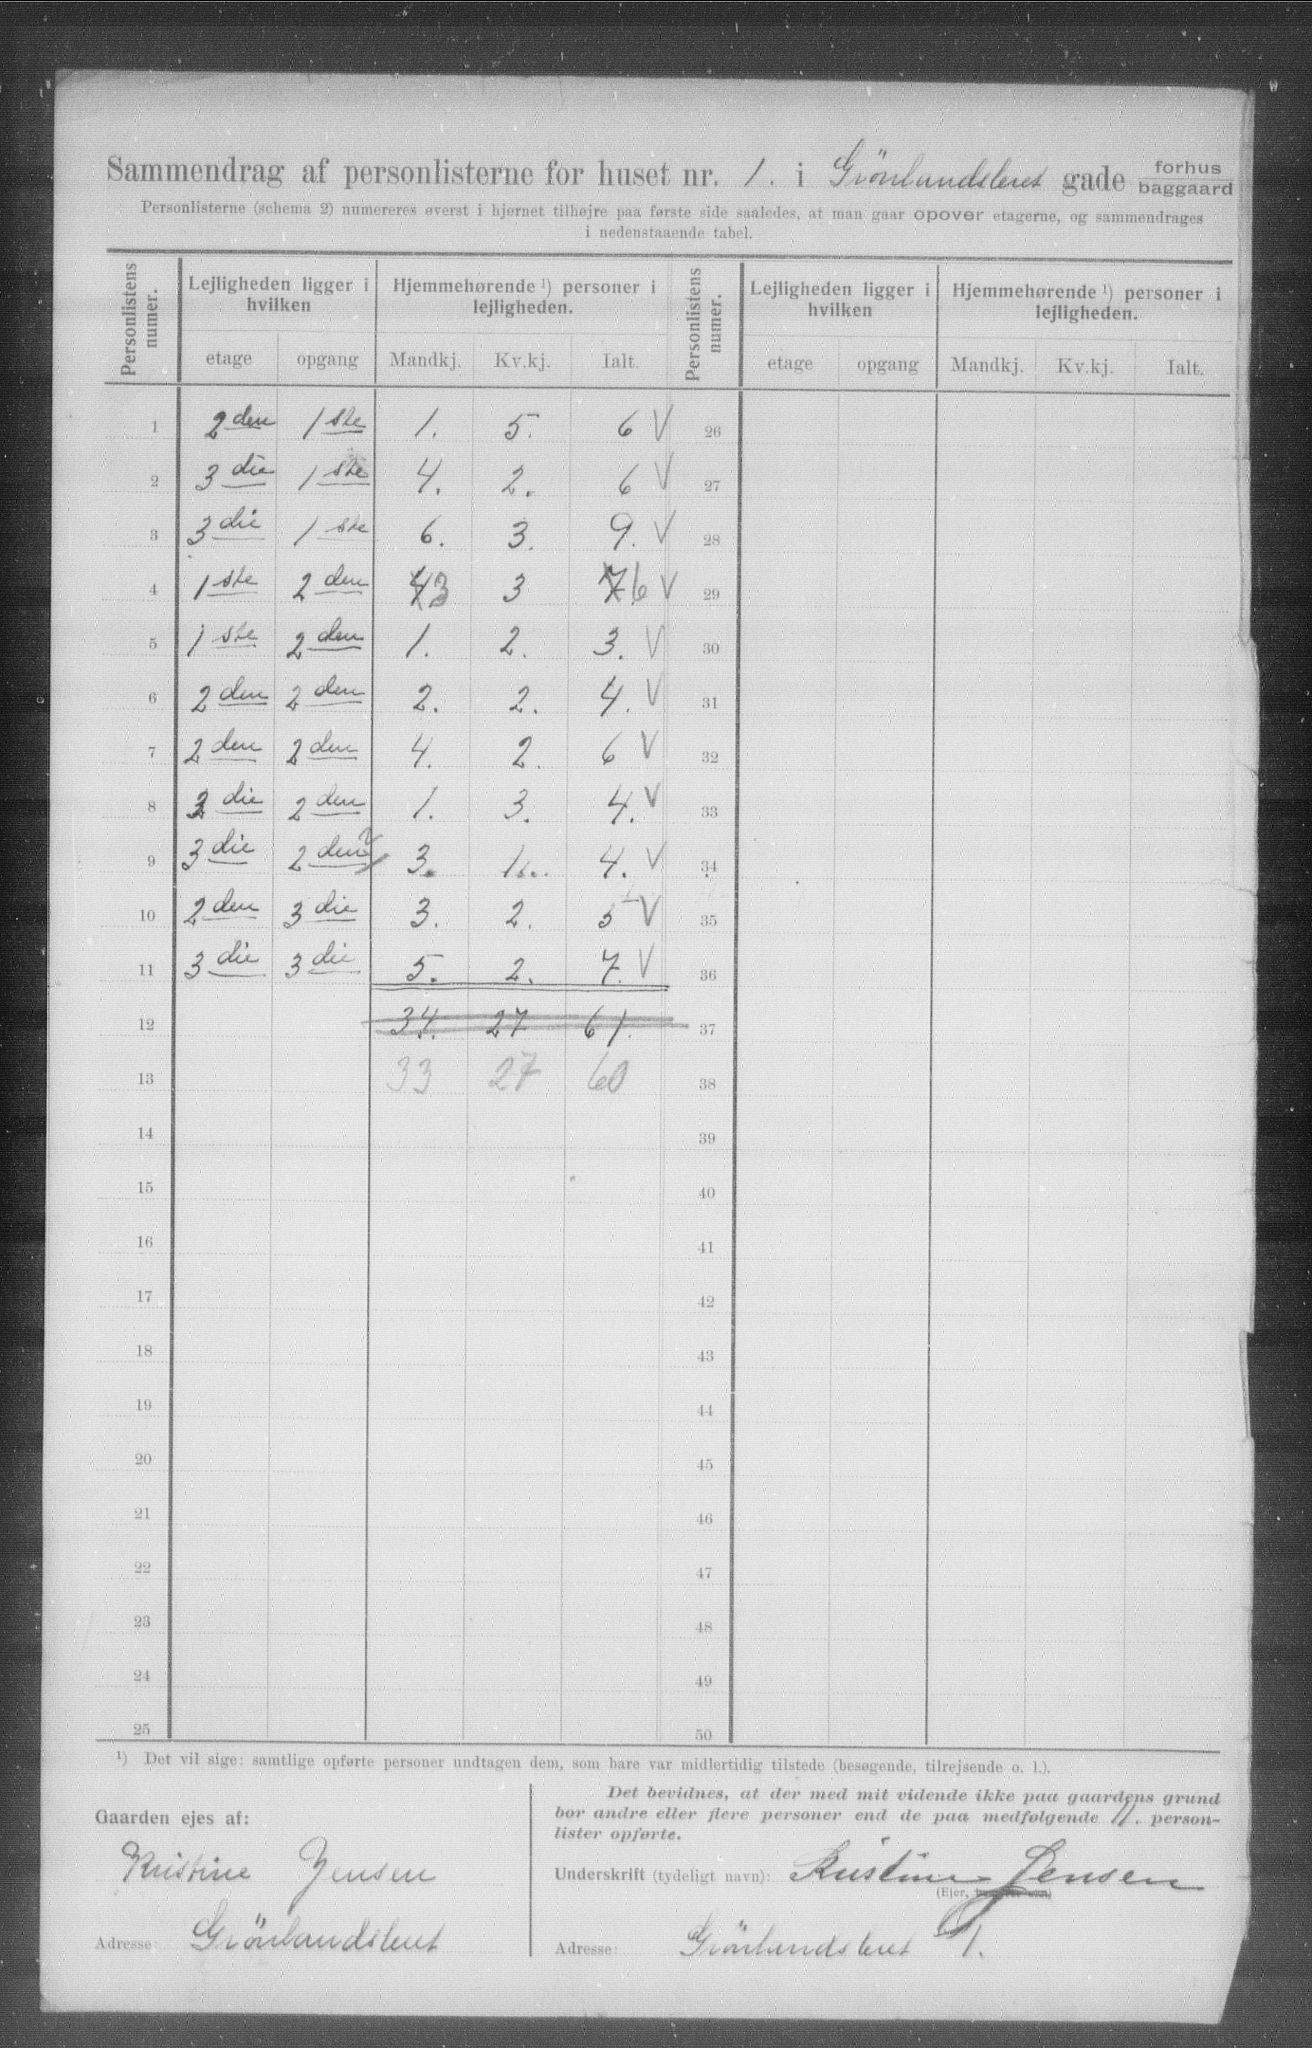 Sammendrag af personlisterne for huset nr. 1. i Grönlandsleret gade forhus
baggaard
Personlisterne (schema 2) numereres øverst i hjørnet tilhøjre paa første side saaledes, at man gaar opover etagerne, og sammendrages
i nedenstaaende tabel.
Personlistens numer. Lejligheden ligger i hvilken Hjemmehørende ¹) personer i lejligheden. Personlistens numer. Lejligheden ligger i hvilken Hjemmehørende ¹) personer i lejligheden.
etage opgang Mandkj. Kv.kj. Ialt. etage opgang Mandkj. Kv.kj. Ialt.
1 2den 1ste 1. 5. 6 V 26
2 3die 1ste 4. 2. 6 V 27
3 3die 1ste 6. 3. 9. V 28
4 1ste 2den 43 3 76 V 29
5 1ste 2den 1. 2. 3. V 30
6 2den 2den 2. 2. 4. V 31
7 2den 2den 4. 2. 6 V 32
8 3die 2den 1. 3. 4. V 33
9 3die 2den 3. 1. 4. V 34
10 2den 3die 3. 2. 5 V 35
11 3die 3die 5. 2. 7. V 36
12 34. 27 61. 37
13 33 27 60 38
14 39
15 40
16 41
17 42
18 43
19 44
20 45
21 46
22 47
23 48
24 49
25 50
¹) Det vil sige: samtlige opførte personer undtagen dem, som bare var midlertidig tilstede (besøgende, tilrejsende o. l.).
Gaarden ejes af:
Kristine Jensen
Adresse: Grönlandsleret
Det bevidnes, at der med mit vidende ikke paa gaardens grund
bor andre eller flere personer end de paa medfølgende 11. person-
lister opførte.
Underskrift (tydeligt navn): Kristine Jensen
(Ejer,
Adresse: Grönlandsleret 1.